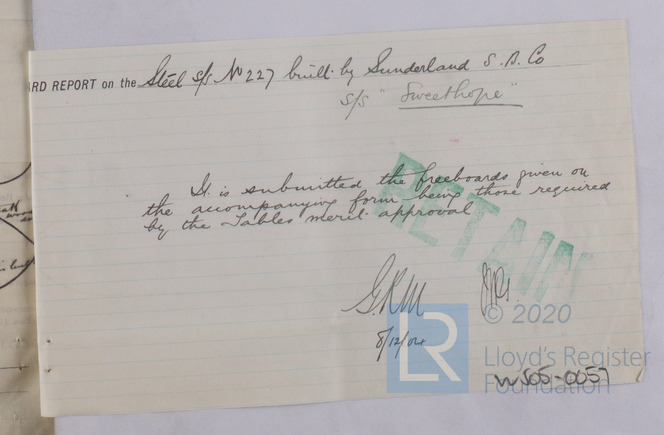 RD REPORT on the Steel s/s No 227 built by Sunderland S. B. Co
s/s "Sweethope"
It is submitted the freeboards given on
the accompanying form being those required
by the Tables merit approval
RETAIN
G.R.M
8/12/04
LR
© 2020
Lloyd's Register
Foundation
W505-0057